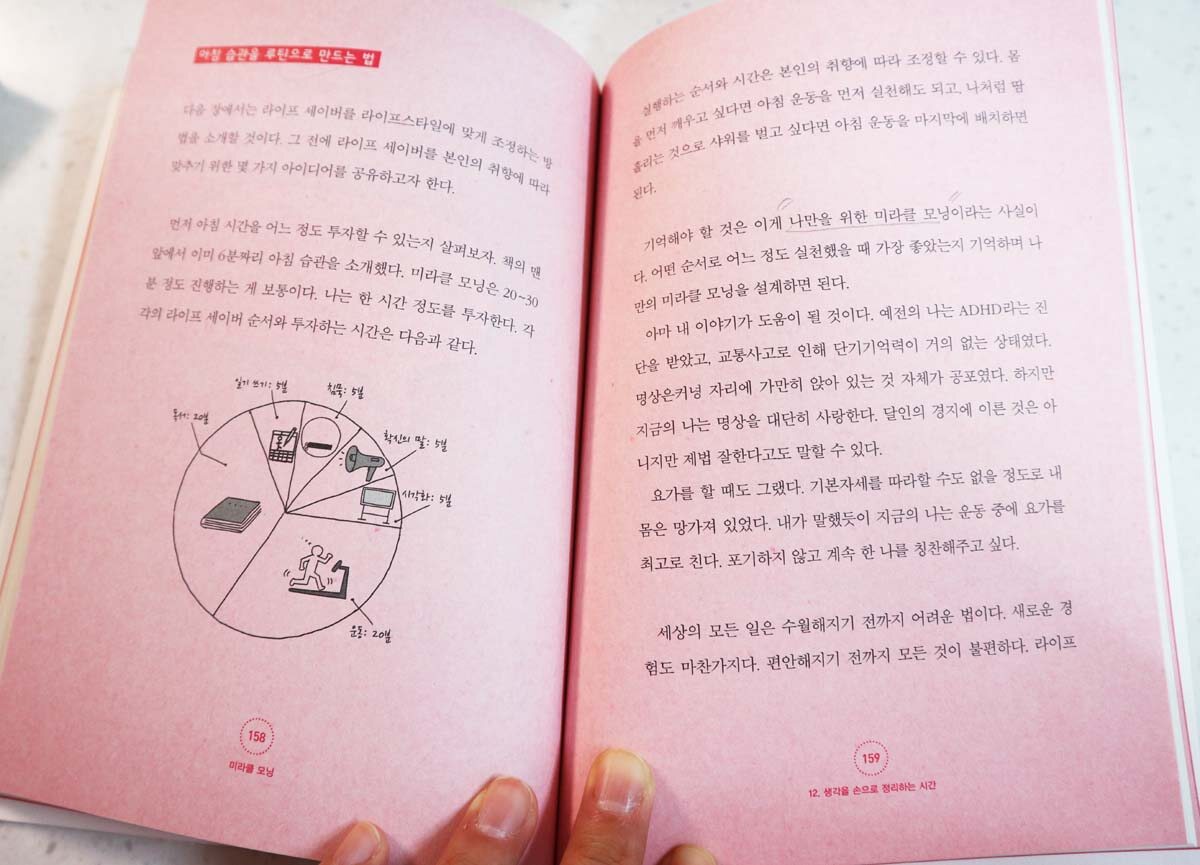 아침 습관을 루틴으로 만드는 법
다음 장에서는 라이프 세이버를 라이프스타일에 맞게 조정하는 방
법을 소개할 것이다. 그 전에 라이프 세이버를 본인의 취향에 따라
맞추기 위한 몇 가지 아이디어를 공유하고자 한다.
먼저 아침 시간을 어느 정도 투자할 수 있는지 살펴보자. 책의 맨
앞에서 이미 6분짜리 아침 습관을 소개했다. 미라클 모닝은 20~30
분 정도 진행하는 게 보통이다. 나는 한 시간 정도를 투자한다. 각
각의 라이프 세이버 순서와 투자하는 시간은 다음과 같다.
일기 쓰기: 5분
침묵: 5분
독서: 20분
확신의 말: 5분
시각화: 5분
운동: 20분
158
미라클 모닝
실행하는 순서와 시간은 본인의 취향에 따라 조정할 수 있다. 몸
을 먼저 깨우고 싶다면 아침 운동을 먼저 실천해도 되고, 나처럼 땀
흘리는 것으로 샤워를 벌고 싶다면 아침 운동을 마지막에 배치하면
된다.
기억해야 할 것은 이게 나만을 위한 미라클 모닝이라는 사실이
다. 어떤 순서로 어느 정도 실천했을 때 가장 좋았는지 기억하며 나
만의 미라클 모닝을 설계하면 된다.
아마 내 이야기가 도움이 될 것이다. 예전의 나는 ADHD라는 진
단을 받았고, 교통사고로 인해 단기기억력이 거의 없는 상태였다.
명상은커녕 자리에 가만히 앉아 있는 것 자체가 공포였다. 하지만
지금의 나는 명상을 대단히 사랑한다. 달인의 경지에 이른 것은 아
니지만 제법 잘한다고도 말할 수 있다.
요가를 할 때도 그랬다. 기본자세를 따라할 수도 없을 정도로 내
몸은 망가져 있었다. 내가 말했듯이 지금의 나는 운동 중에 요가를
최고로 친다. 포기하지 않고 계속 한 나를 칭찬해주고 싶다.
세상의 모든 일은 수월해지기 전까지 어려운 법이다. 새로운 경
험도 마찬가지다. 편안해지기 전까지 모든 것이 불편하다. 라이프
159
12. 생각을 손으로 정리하는 시간